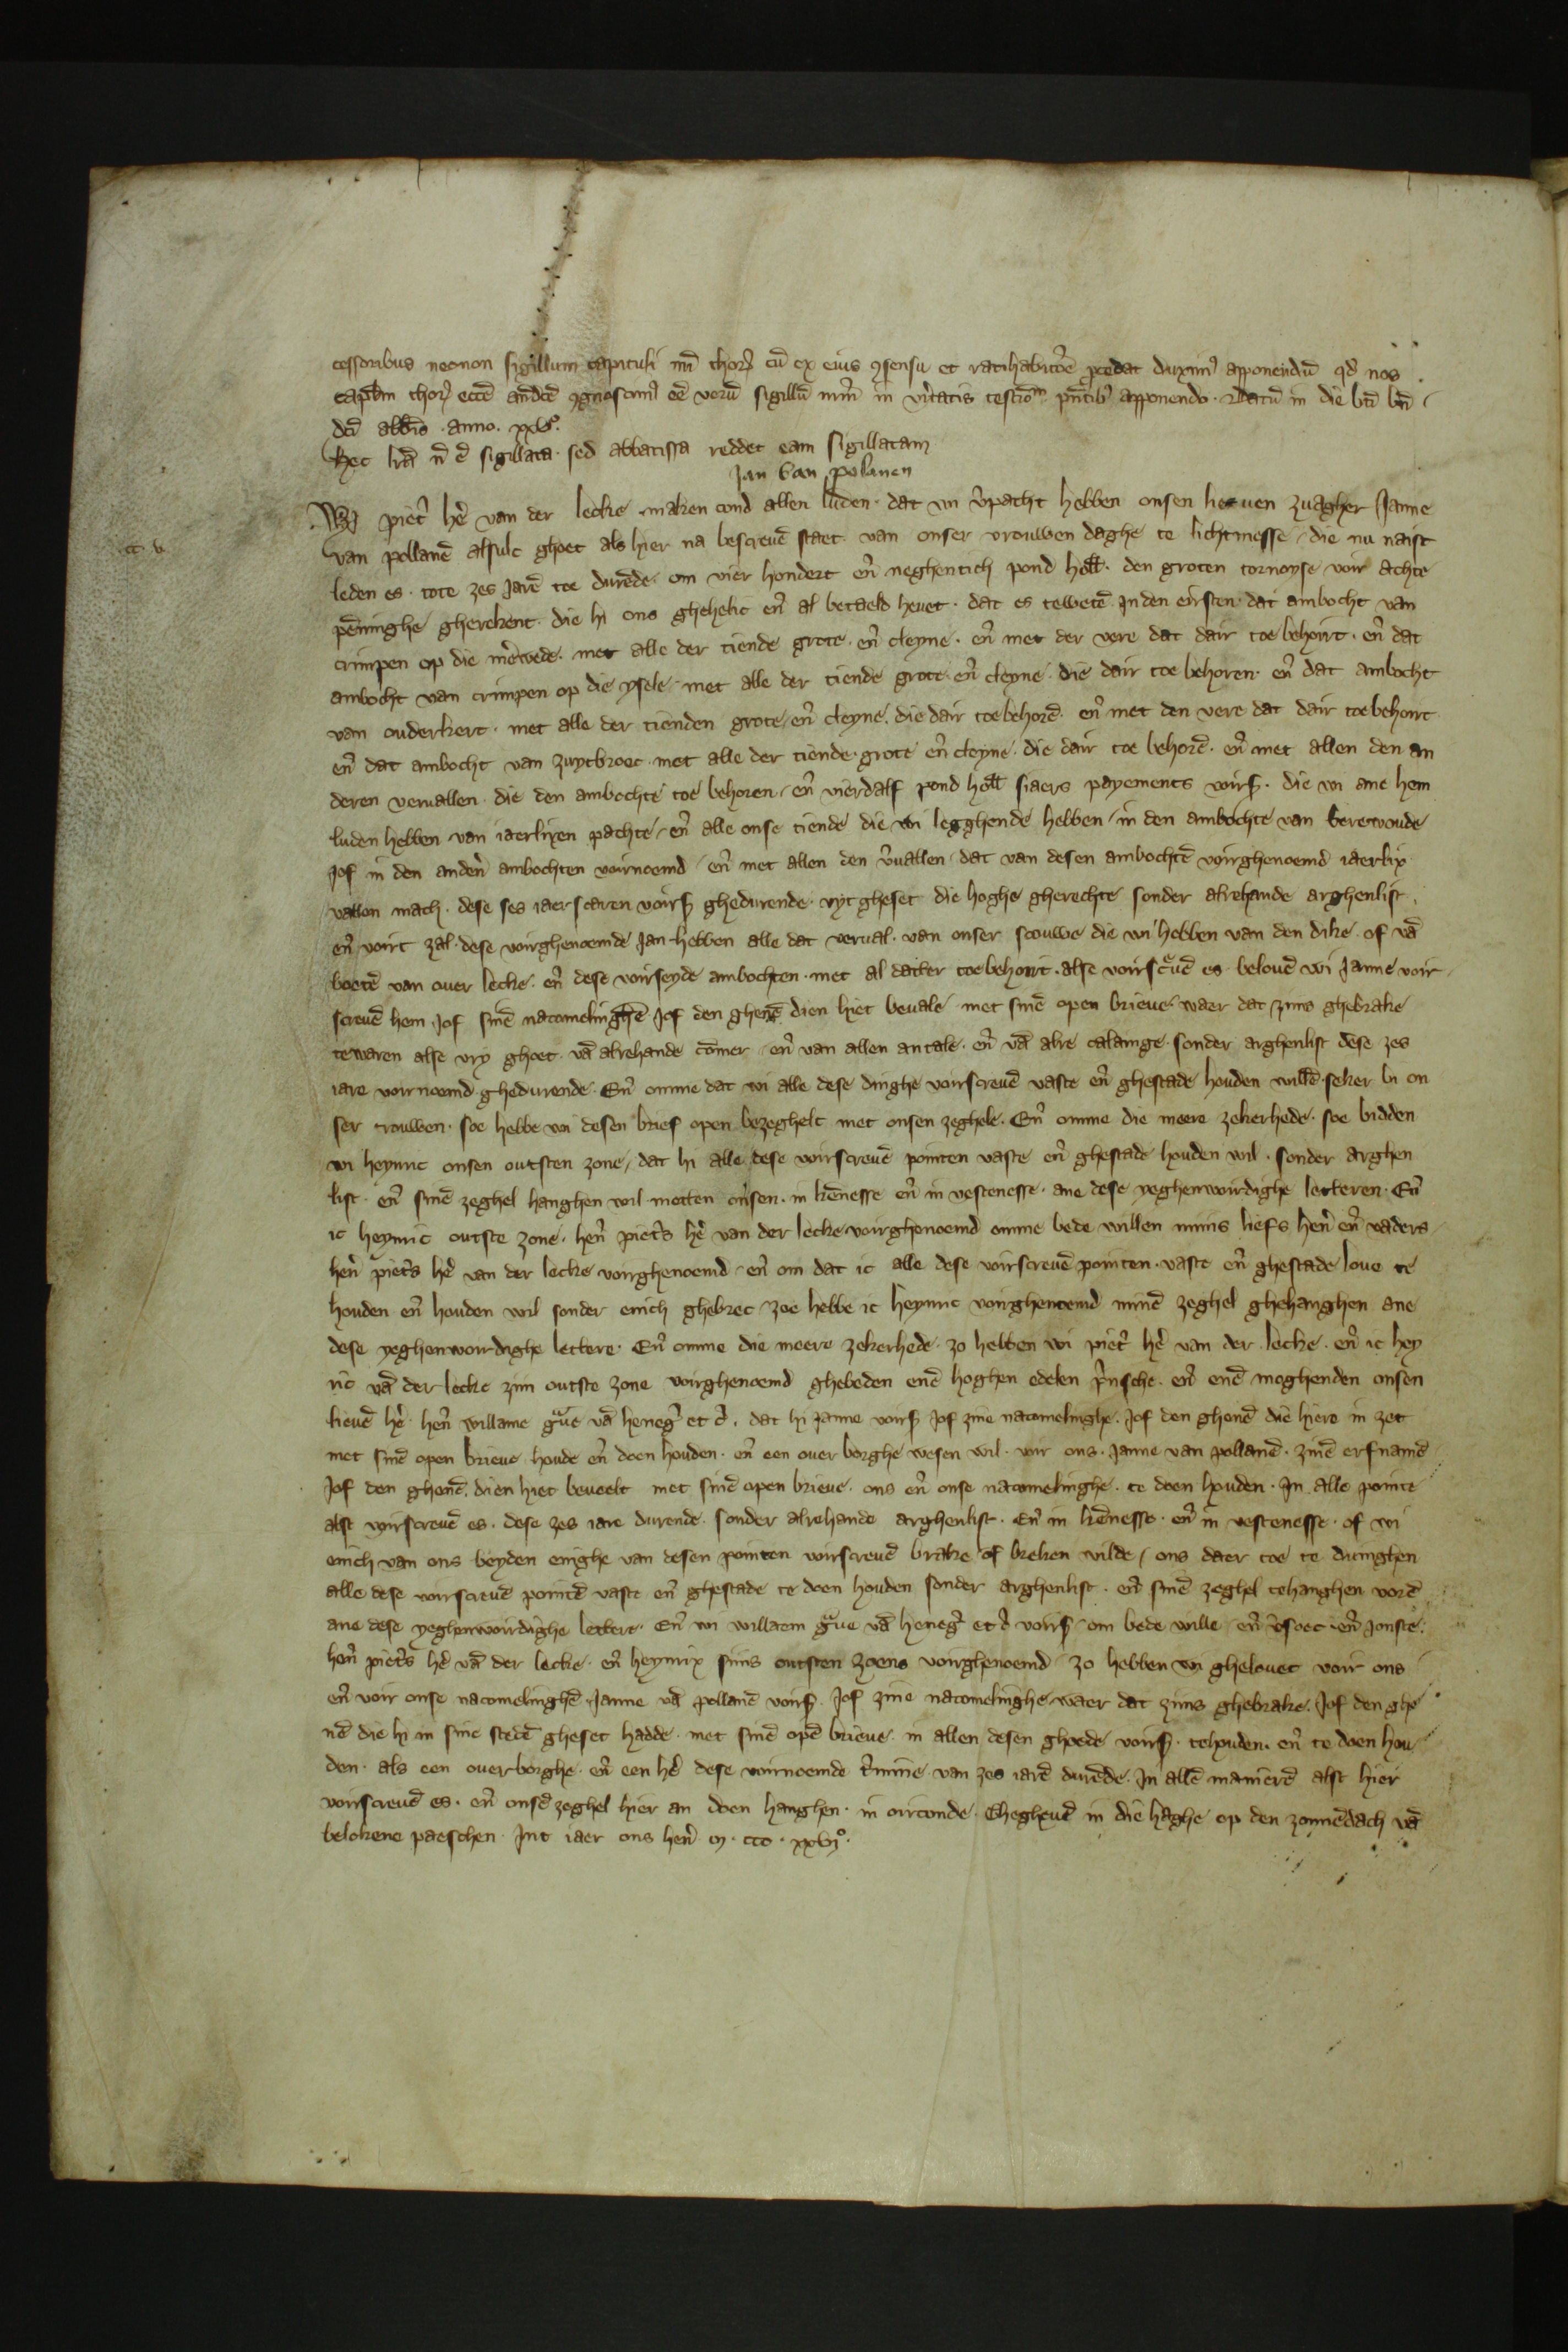 cessoribus necnon sigillum capituli nri thorn cu ex eius ꝯsensu et ratihabitōe ꝓcedat duximꝰ apponendū qd nos
capłm thorn eccē andcē ꝯgnoscimꝰ eē verū sigillū nrm in vitatis testiōm pntibꝰ apponendo. Datū in die bti bn
dci abbis. anno. xxvͦ.
hec lrā n ē sigillata. sed abbatissa reddet eam sigillatam
Jan van polanen
cc. v.
Wj piet hē van der lecke maken cond allen luden. dat wi vpacht hebben onsen lieuen zuagher Janne
van pollanē alsulc ghoet als hier na bescreuē staet. van onser vrouwen daghe te lichtmesse, die nu naist
leden es. tote zes Jarē toe durēde. om vier hondert eñ neghentich pond holl. den groten tornoyse voir achte
pēninghe gherekent. die hi ons ghehelic eñ al betaeld heuet. dat es tewetē Jnden eirsten. dat ambocht van
crimpen op die merwede. met alle der tiende grote. eñ cleyne. eñ met der vere dat dair toe behoirt. eñ dat
ambocht van crimpen op die ysele. met alle der tiende grote. eñ cleyne. die dair toe behoren. eñ dat ambocht
van ouderkert. met alle der tienden grote, eñ cleyne. die dair toe behorē. eñ met den vere dat dair toe behoirt
eñ dat ambocht van zuytbroec. met alle der tiende. grote eñ cleyne. die dair toe behorē. eñ met allen den an
deren veruallen. die den ambochte toe behoren. eñ vierdalf pond holl siaers payements voirs. die wi ane hem
luden hebben van iaerlixen pachte, eñ alle onse tiende die wi legghende hebben in den ambochte van berewoude
Jof in den anderē ambochten voirnoemd eñ met allen den vuallen dat van desen ambochtē voirghenoemd iaerlix
vallen mach. dese ses iaerscaren voirs ghedurende. vytgheset die hoghe gherechte sonder alrehande arghenlist.
eñ voirt zal. dese voirghenoemde Jan hebben alle dat verual. van onser scouwe die wi hebben van den dike. of vā
boetē van ouer lecke. eñ dese voirseyde ambochten. met al datter toebehoirt. alse voirscuē es. belouē wi Janne voir
screuē hem Jof sinē nacomelinghē Jof den ghenē dien hiet beuale met sinē open brieue waer dat zijns ghebrake
tewaren alse vry ghoet. vā alrehande cōmer eñ van allen antale. eñ vā alre calainge. sonder arghenlist dese zes
iare voirnoemd ghedurende. Eñ omme dat wi alle dese dinghe voirscreuē vaste eñ ghestade houden willē. seker bi on
ser trouwen. soe hebbe wi desen brief open bezeghelt met onsen zeghele. Eñ omme die meere zekerhede. soe bidden
wi heynric onsen outsten zone, dat hi alle dese voirscreuē pointen vaste eñ ghestade houden wil. sonder arghen
list. eñ sinē zeghel hanghen wil metten onsen. in kēnesse eñ in vestenesse. ane dese yeghenwoirdighe letteren. Eñ
ic heynric outste zone. heñ piets hē van der lecke voirghenoemd omme bede willen mijns liefs heñ eñ vaders
heñ piets hē van der lecke voirghenoemd eñ om dat ic alle dese voirscreuē pointen. vaste eñ ghestade loue te
houden eñ houden wil sonder enich ghebrec zoe hebbe ic heynric voirghenoemd minē zeghel ghehanghen ane
dese yeghenwoirdighe lettere. Eñ omme die meere zekerhede. zo hebben wi piet hē van der lecke. eñ ic hey
ric vā der lecke zijn outste zone voirghenoemd ghebeden enē hoghen edelen prinsche. eñ enē moghenden onsen
lieuē hē. heñ willame gue vā heneg et c. dat hi Janne voirs Jof zine nacomelinghe. Jof den ghenē die hiere in zet
met sinē open brieue houde eñ doen houden. eñ een ouer borghe wesen wil. voir ons. Janne van pollanē. zinē erfnamē
Jof den ghenē. dien hiet beueelt met sinē open brieue. ons eñ onse nacomelinghe. te doen houden. Jn alle pointe
alst voirscreuē es. dese zes iare durende. sonder alrehande arghenlist. Eñ in kēnesse. eñ in vestenesse. of wi
enich van ons beyden enighe van desen pointen voirscreuē brake of breken wilde, ons daer toe te duinghen
alle dese voirscreuē pointē vaste eñ ghestade te doen houden sonder arghenlist. eñ sinē zeghel tehanghen vorē
ane dese yeghenwoirdighe lettere. Eñ wi willaem gue vā heneg et c voirs om bede wille eñ vsoec eñ Jonste.
heñ piets hē vā der lecke. eñ heynrix sijns outsten zoens voirghenoemd zo hebben wi ghelouet voir ons
eñ voir onse nacomelinghē Janne vā pollanē voirs. Jof zine nacomelinghe waer dat zijns ghebrake. Jof den ghe
nē die hi in sine stedē gheset hadde. met sinē opē brieue. in allen desen ghoede voirs. tehouden. eñ te doen hou
den. als een ouerborghe. eñ een hē dese voirnoemde tmine van zes iarē durēde. Jn allē manierē alst hier
voirscreuē es. eñ onsē zeghel hier an doen hanghen. in oirconde. Ghegheuē in die haghe op den zonnēdach vā
belokene paeschen. Jnt iaer ons heñ m. ccc. xxvjͦ.